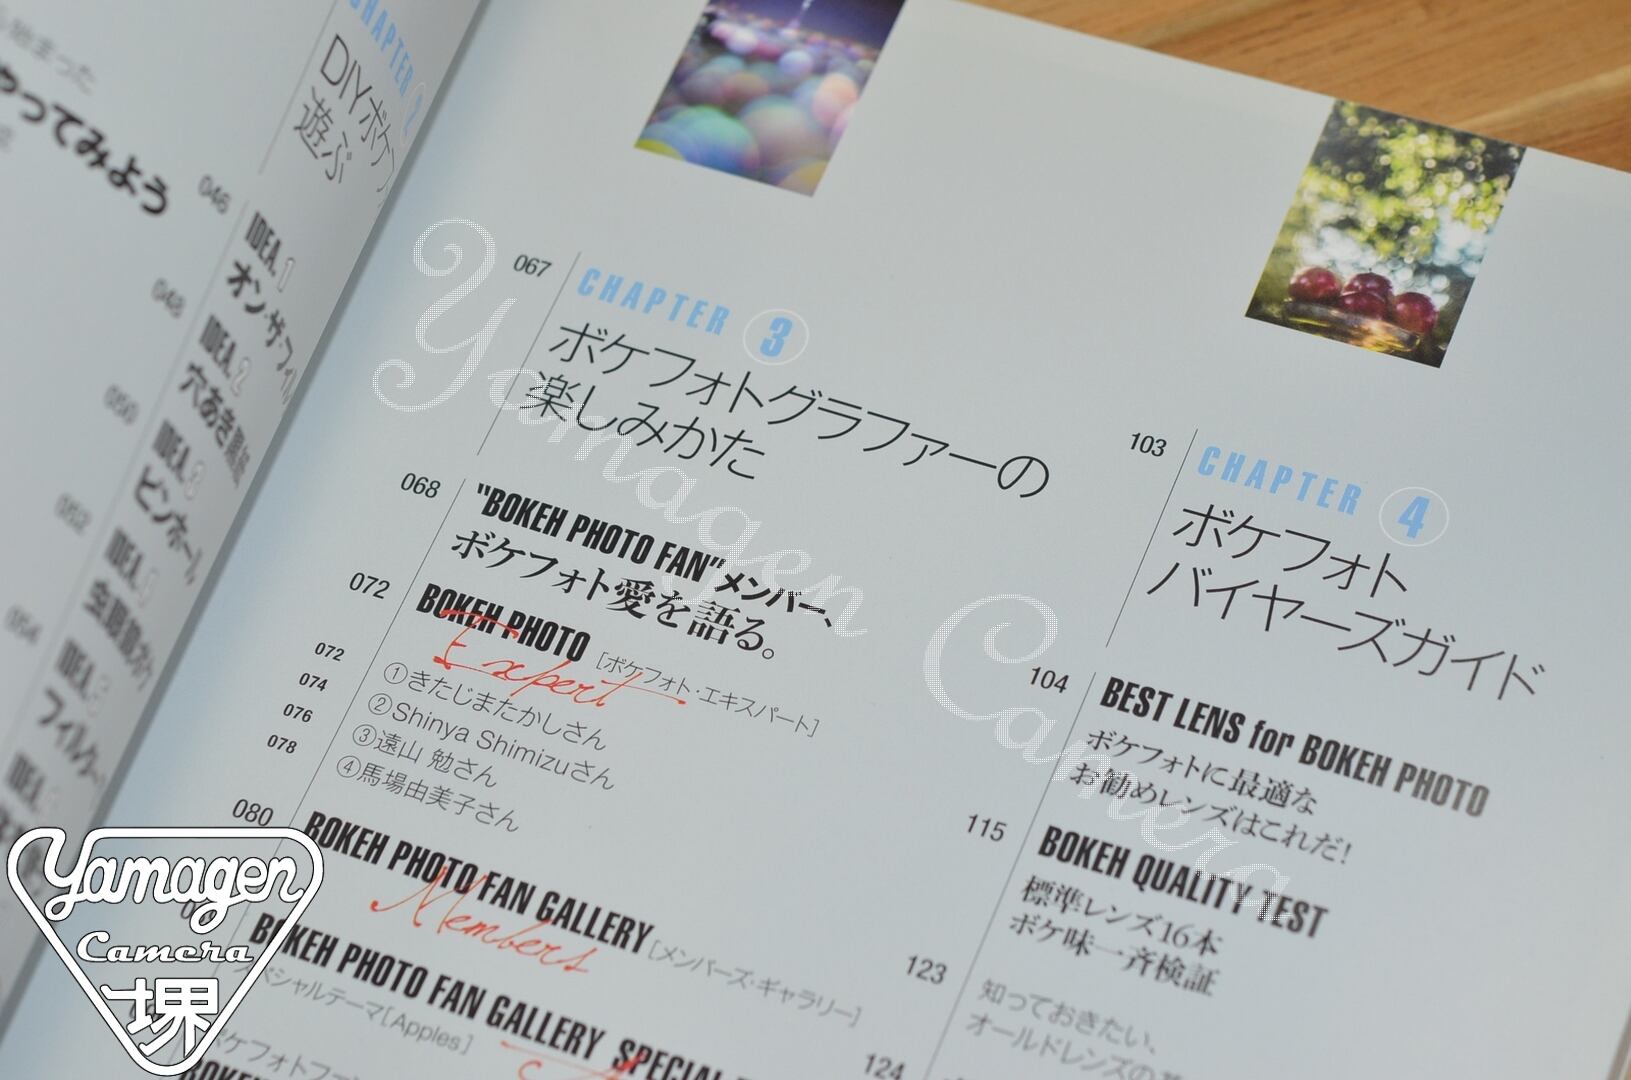 やってみよう
CHAPTER 2
DIYボケフ
遊ぶ
046
IDEA. 1
オン・ザ・フィル
048
IDEA. 2
穴あき黒紙
050
IDEA. 3
ピンホール
052
054
067
CHAPTER 3
ボケフォトグラファーの
楽しみかた
068
"BOKEH PHOTO FAN"メンバー、
ボケフォト愛を語る。
072
BOKEH PHOTO
Expert
[ボケフォト・エキスパート]
072
①きたじまたかしさん
074
②Shinya Shimizuさん
076
③遠山 勉さん
078
④馬場由美子さん
080
BOKEH PHOTO FAN GALLERY
Members
[メンバーズ・ギャラリー]
BOKEH PHOTO FAN GALLERY SPECIAL
スペシャルテーマ[Apples]
103
CHAPTER 4
ボケフォト
バイヤーズガイド
104
BEST LENS for BOKEH PHOTO
ボケフォトに最適な
お勧めレンズはこれだ!
115
BOKEH QUALITY TEST
標準レンズ16本
ボケ味一斉検証
123
知っておきたい、
オールドレンズの
124
Yamagen Camera
Yamagen
Camera
堺